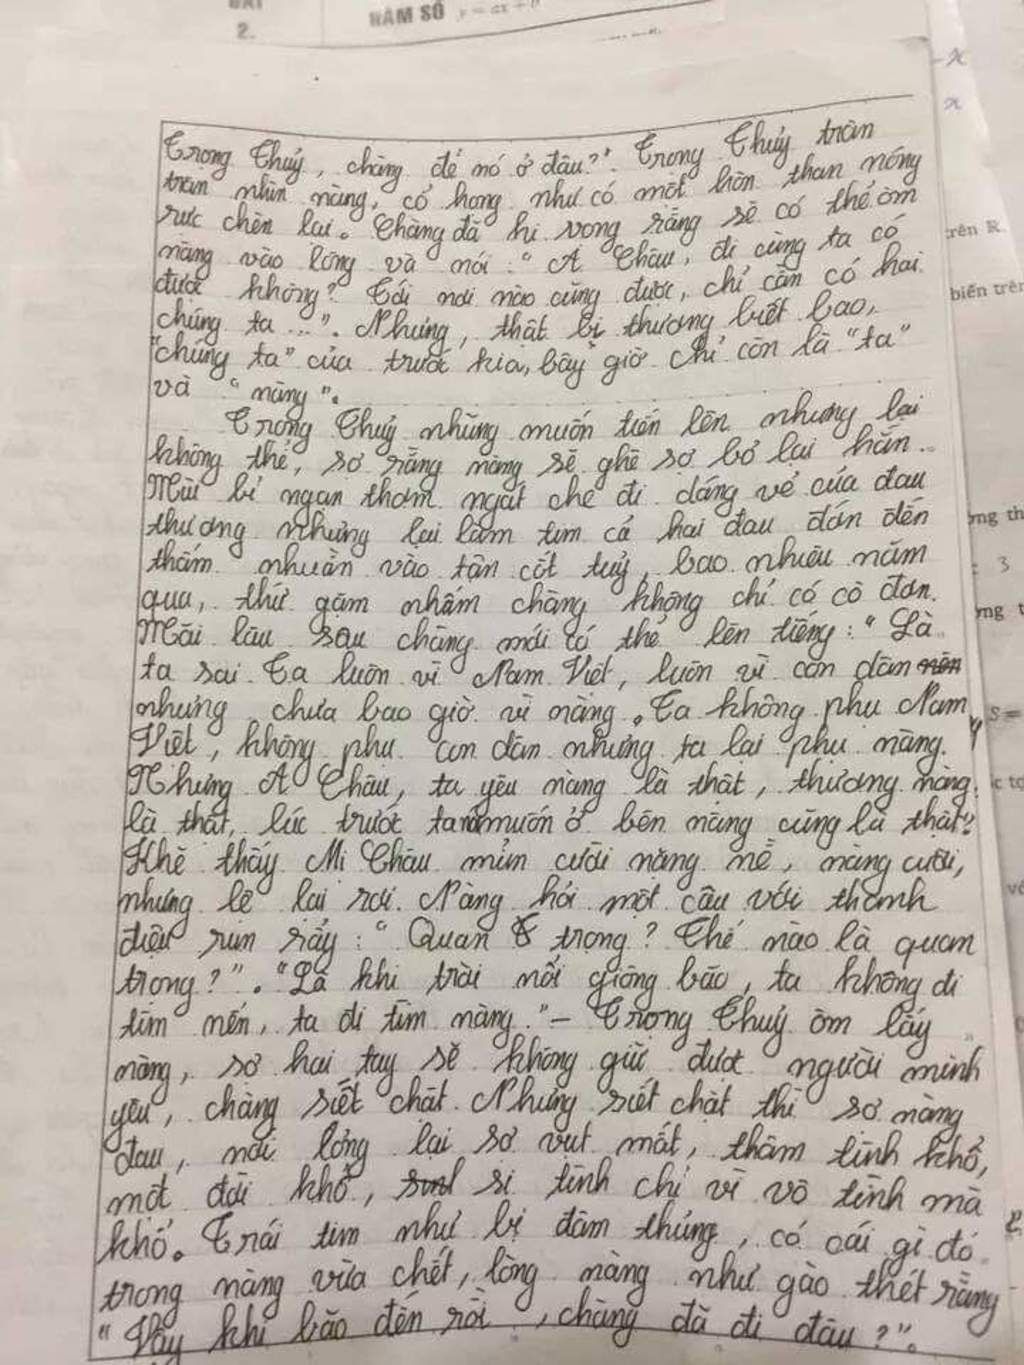 BÀI
2.
HÀM SỐ y = ax + b
-x
x
Trong Thủy, chàng để nó ở đâu?". Trọng Thủy trân
trân nhìn nàng, cổ họng như có một hòn than nóng
rực chèn lại. Chàng đã hi vọng rằng sẽ có thể ôm
nàng vào lòng và nói: "A Châu, đi cùng ta có
được không? Tới nơi nào cũng được, chỉ cần có hai
chúng ta ...". Nhưng, thật bi thương biết bao,
"chúng ta" của trước kia, bây giờ chỉ còn là "ta"
và "nàng".
Trọng Thủy những muốn tiến lên nhưng lại
không thể, sợ rằng nàng sẽ ghê sợ bỏ lại hắn.
Mùi bỉ ngạn thơm ngát che đi dáng vẻ của đau
thương nhưng lại làm tim cả hai đau đớn đến
thấm nhuần vào tận cốt tuỷ, bao nhiêu năm
qua, thứ gặm nhấm chàng không chỉ có cô đơn.
Mãi lâu sau chàng mới có thể lên tiếng: "Là
ta sai. Ta luôn vì Nam Việt, luôn vì con dân nên
nhưng chưa bao giờ vì nàng. Ta không phụ Nam
Việt, không phụ con dân nhưng ta lại phụ nàng.
Nhưng A Châu, ta yêu nàng là thật, thương nàng
là thật, lúc trước ta muốn ở bên nàng cũng là thật"
Khẽ thấy Mị Châu mỉm cười nặng nề, nàng cười,
nhưng lệ lại rơi. Nàng hỏi một câu với thanh
điệu run rẩy: "Quan trọng? Thế nào là quan
trọng?". "Là khi trời nổi giông bão, ta không đi
tìm nến, ta đi tìm nàng." - Trọng Thuỷ ôm lấy
nàng, sợ hai tay sẽ không giữ được người mình
yêu, chàng siết chặt. Nhưng siết chặt thì sợ nàng
đau, nới lỏng lại sợ vụt mất, thâm tình khổ,
một đời khổ, si tình chỉ vì vô tình mà
khổ. Trái tim như bị đâm thủng, có cái gì đó
trong nàng vừa chết, lòng nàng như gào thét rằng
"Vậy khi bão đến rồi, chàng đã đi đâu?".
rên R.
biến trên
ng th
: 3
ng t
S=